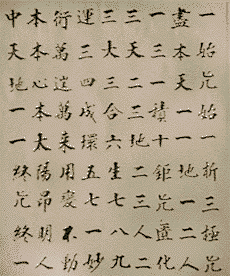 一始无始一析三極无
盡本天一一地一二人
一三一積十鉅无匱化
三天二三地二三人二
三大三合六生七八九
運三四成環五七一妙
衍萬迬萬来用變不動
本本心本太陽昂明人
中天地一一終无終一